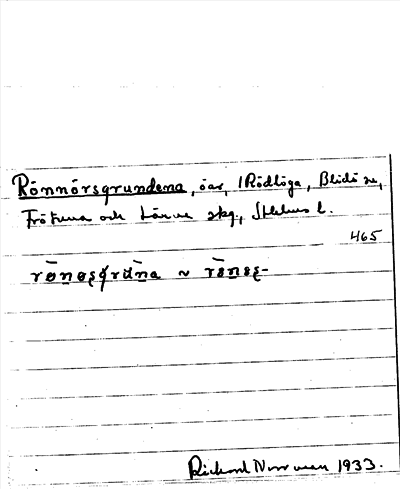 Rönnörsgrundena, öar, i Rödlöga, Blidö sn,
Frötuna och Länna skg., Sthlms l.
465
rönəsgrūna ~ rønəs-
Rickard Norrman 1933.